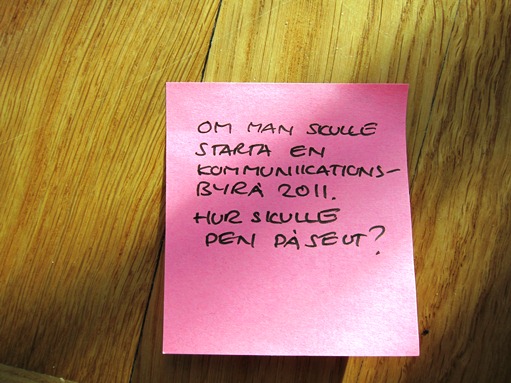 OM MAN SKULLE
STARTA EN
KOMMUNIICATIONS-
BYRÅ 2011.
HUR SKULLE
DEN DÅ SE UT?